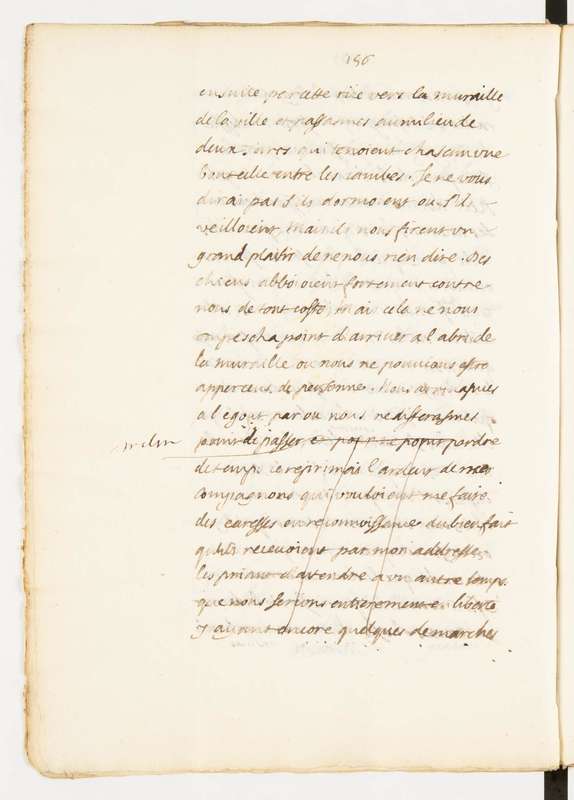 156
ensuite par cette rüe vers la muraille
de la ville et passasmes au milieu de
deux Turcs qui tenoient chascun vne
bouteille entre les iambes. Je ne vous
dirai pas s'ils dormoient ou s'ils
veilloient, mais ils nous firent vn
grand plaisir de ne nous rien dire. Des
chiens abboioient fortement contre
nous de tout costé, mais cela ne nous
empescha point d'arriuer a l'abri de
la muraille ou nous ne pouuions estre
apperceus de personne. Nous arriuasmes
a l'egout par ou nous ne differasmes
point de passer, et pour ne point perdre
de temps ie reprimois l'ardeur de mes
compagnons qui vouloient me faire
des caresses en reconnoissance du bien fait
qu'ils receuoient par mon addresse,
les priant d'attendre a vn autre temps
que nous serions entierement en liberté
y ayant encore quelques demarches